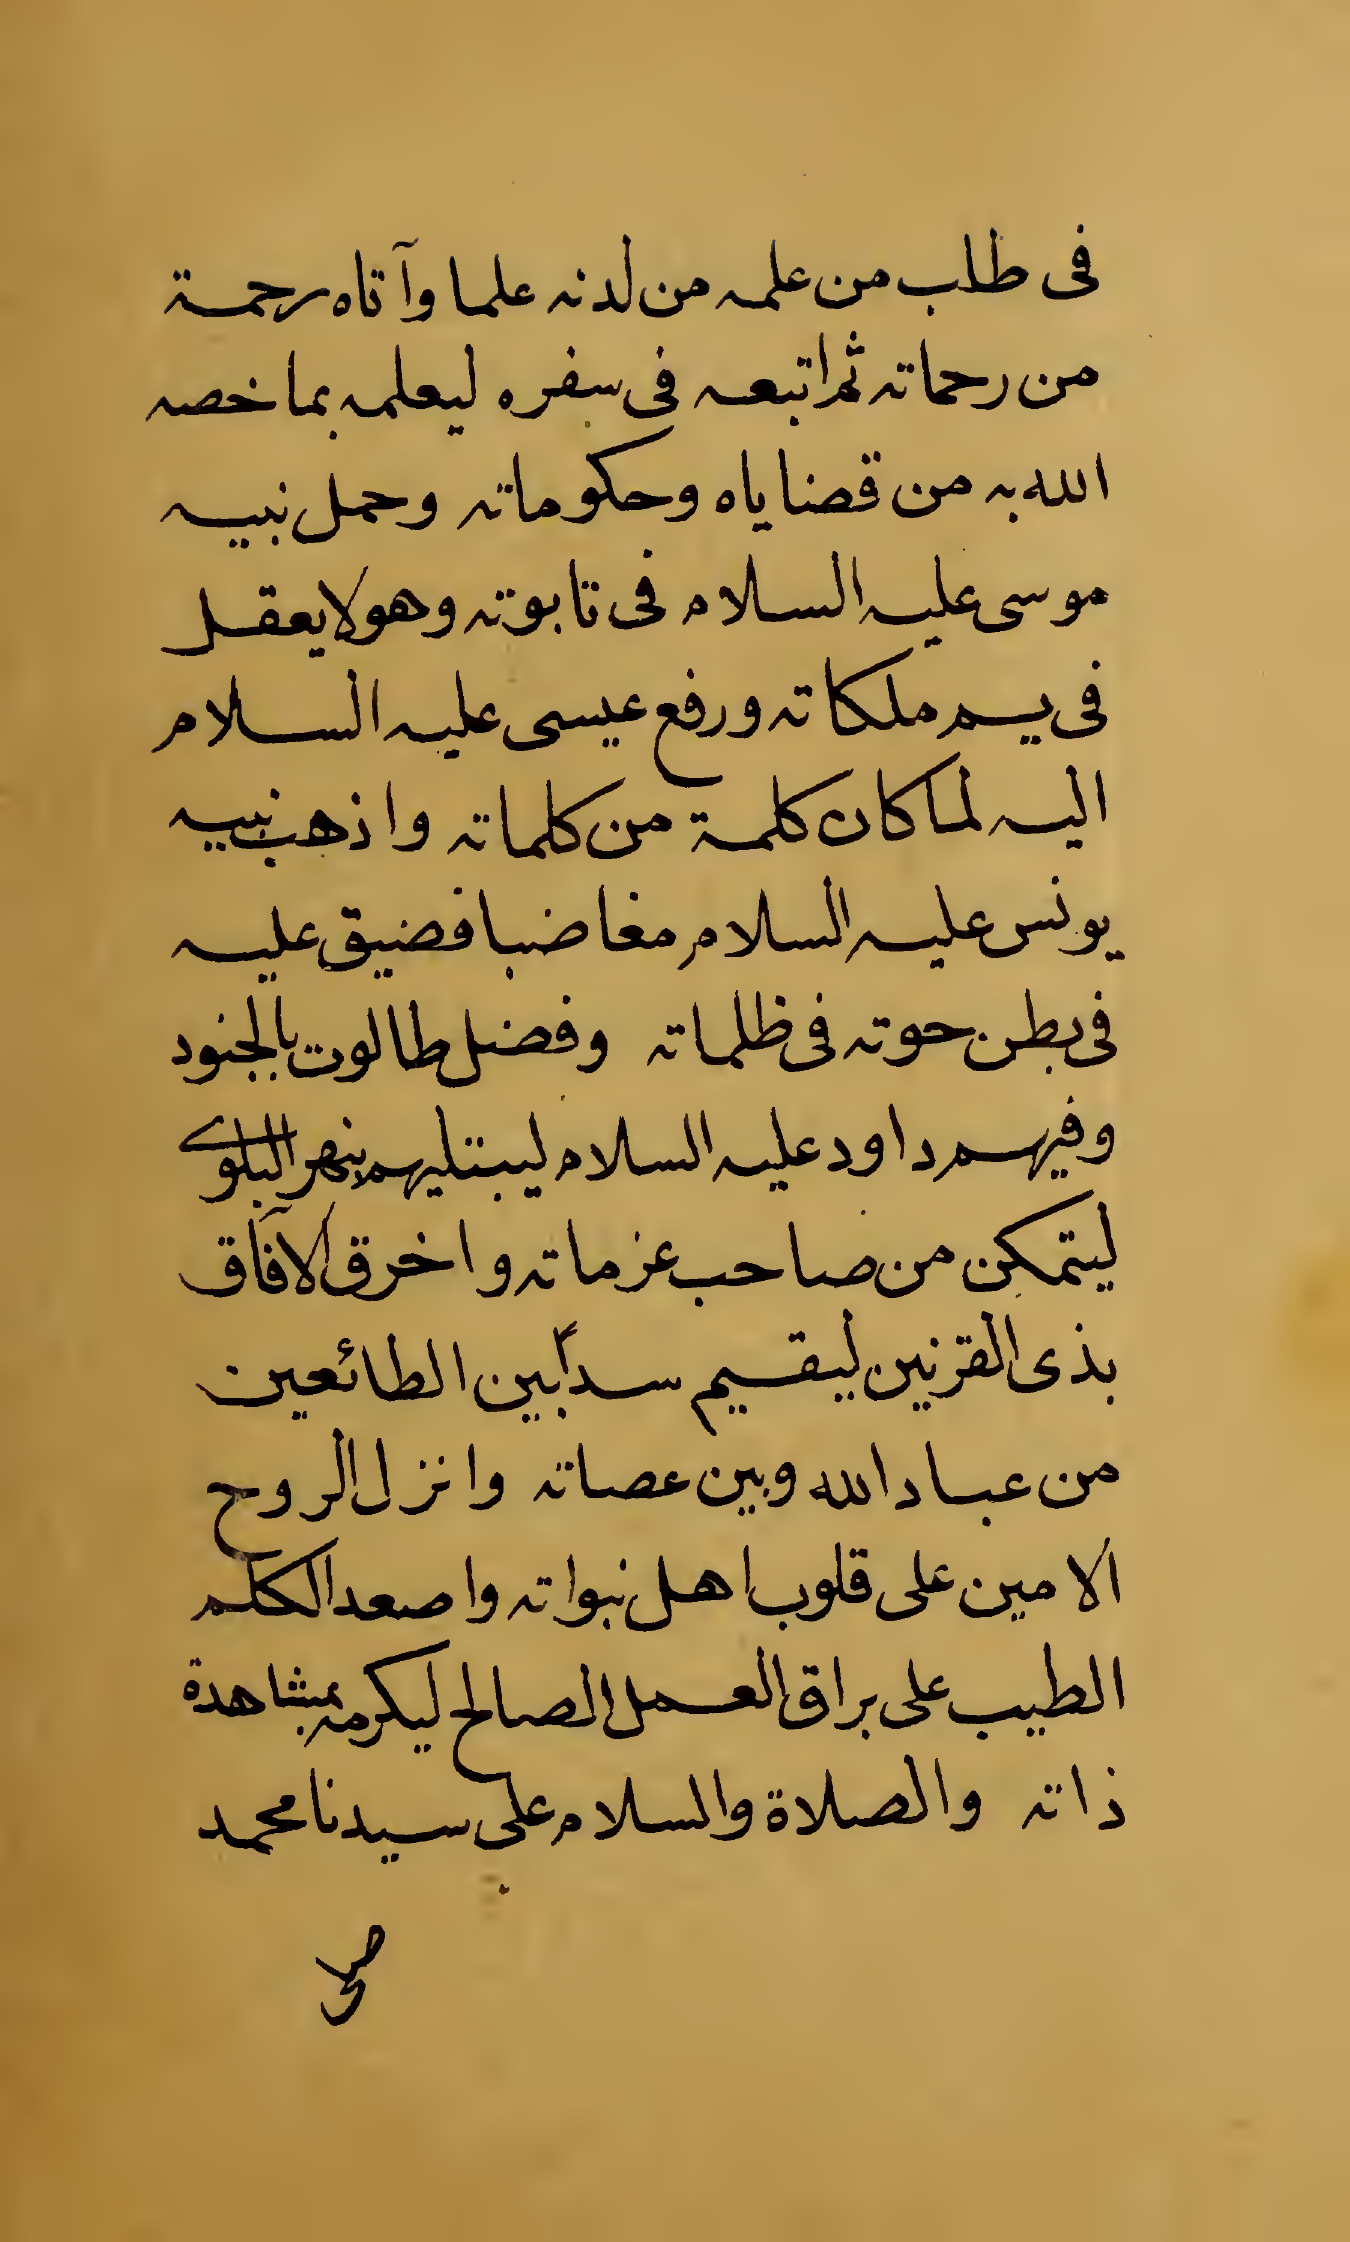 فى طلب من علمه من لدنه علما وآتاه رحمة
من رحماته ثم اتبعه فى سفره ليعلمه بما خصه
الله به من قضاياه وحكوماته وحمل نبيه
موسى عليه السلام فى تابوته وهو لا يعقل
فى يم ملكاته ورفع عيسى عليه السلام
اليه لما كان كلمة من كلماته واذهب نبيه
يونس عليه السلام مغاضبا فضيق عليه
فى بطن حوته فى ظلماته وفضل طالوت بالجنود
وفيهم داود عليه السلام ليبتليهم بنهر البلوى
ليتمكن من صاحب عزماته واخرق الآفاق
بذى القرنين ليقيم سداً بين الطائعين
من عباد الله وبين عصاته وانزل الروح
الامين على قلوب اهل نبواته واصعد الكلم
الطيب على براق العمل الصالح ليكرمه بمشاهدة
ذاته والصلاة والسلام على سيدنا محمد